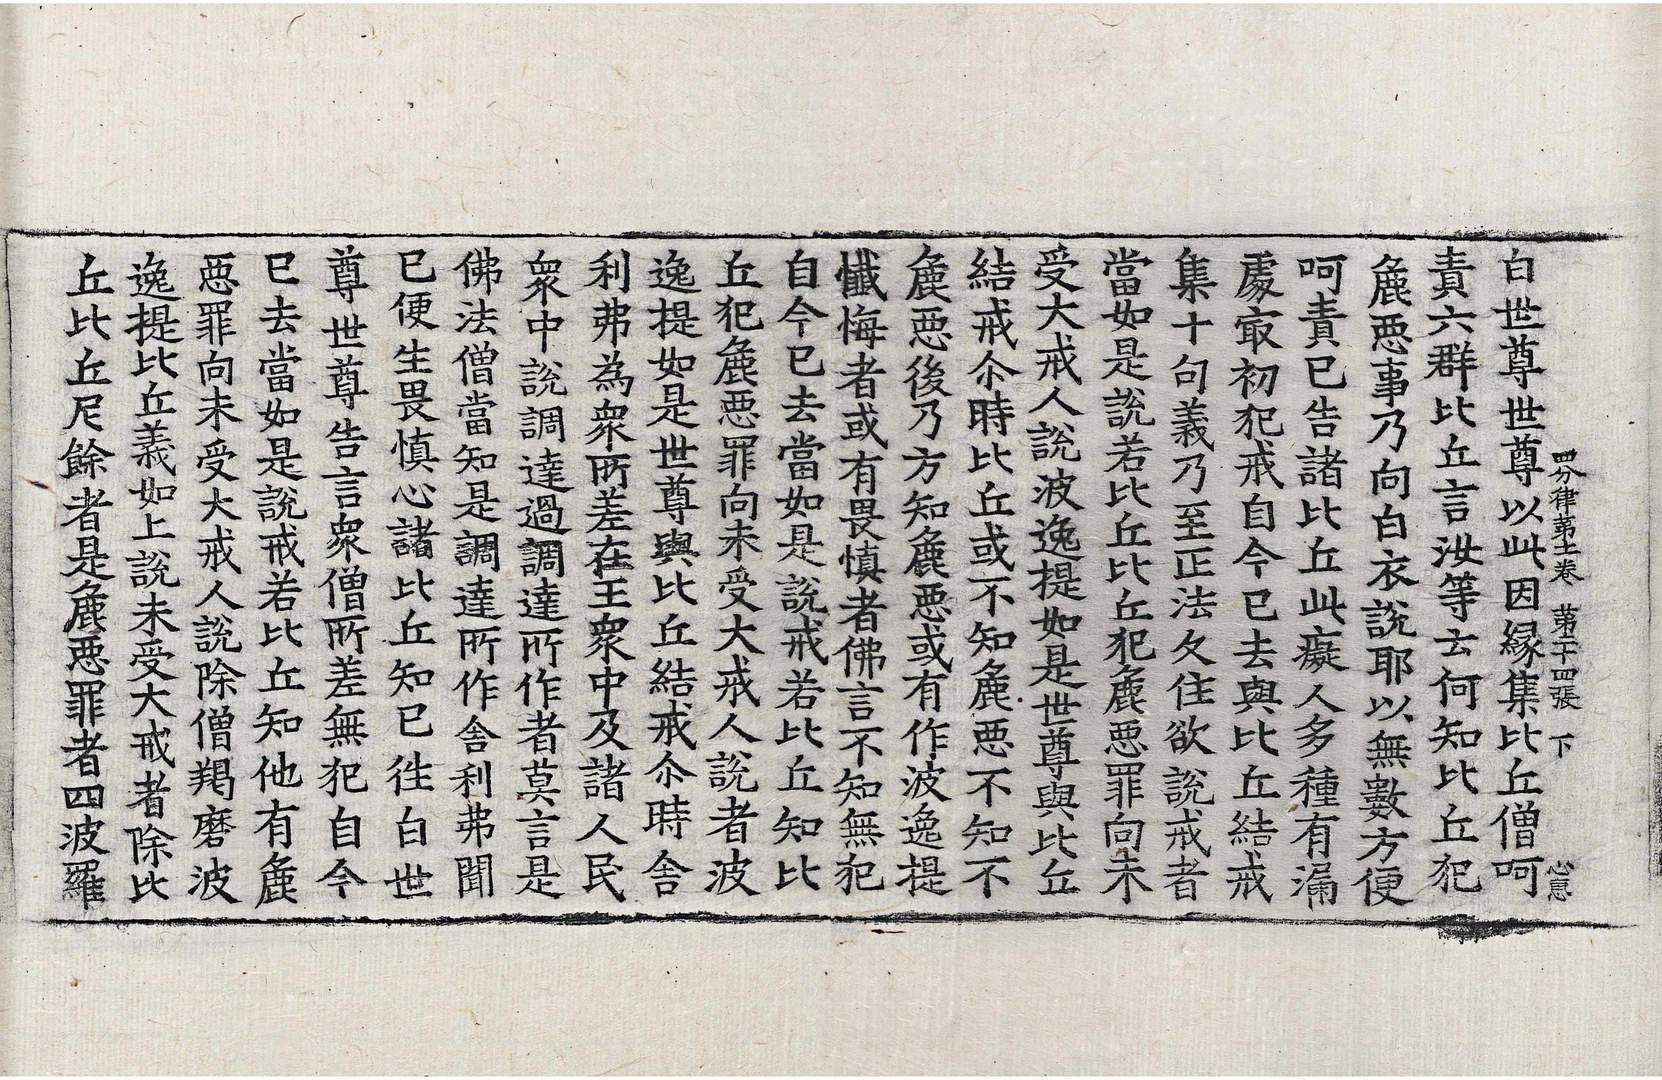 四分律第十一卷 第二十四張 下 心意
白世尊世尊以此因緣集比丘僧呵
責六群比丘言汝等云何知比丘犯
麁惡事乃向白衣說耶以無數方便
呵責已告諸比丘此癡人多種有漏
處冣初犯戒自今已去與比丘結戒
集十句義乃至正法久住欲說戒者
當如是說若比丘比丘犯麁惡罪向未
受大戒人說波逸提如是世尊與比丘
結戒尒時比丘或不知麁惡不知不
麁惡後乃方知麁惡或有作波逸提
懺悔者或有畏慎者佛言不知無犯
自今已去當如是說戒若比丘知比
丘犯麁惡罪向未受大戒人說者波
逸提如是世尊與比丘結戒尒時舍
利弗為衆所差在王衆中及諸人民
衆中說調達過調達所作者莫言是
佛法僧當知是調達所作舍利弗聞
已便生畏慎心諸比丘知已徃白世
尊世尊告言衆僧所差無犯自今
已去當如是說戒若比丘知他有麁
惡罪向未受大戒人說除僧羯磨波
逸提比丘義如上說未受大戒者除比
丘比丘尼餘者是麁惡罪者四波羅